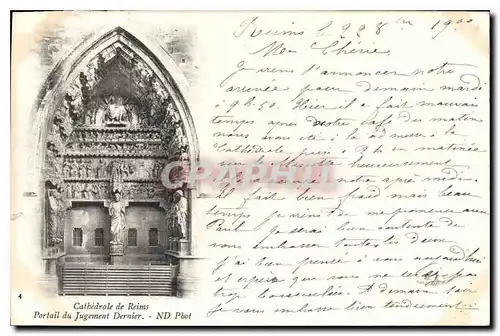 Reims le 22 8bre 1900
Ma Chérie
Je viens t'annoncer notre
arrivée pour demain mardi
à 9h.50. Hier il a fait mauvais
temps après notre café du matin
nous avons été à la messe à la
Cathédrale puis
sur le heureusement
CARTE-PHILA
Il fait bien froid mais beau
temps, je viens de me promener avec
Paul, je serai bien contente de
vous embrasser toutes les deux
J'ai bien pensé à vous aujourd'hui
et espère que vous ne
trop bousculées. Je
vous embrasse bien tendrement
4
Cathédrale de Reims
Portail du Jugement Dernier. - ND Phot